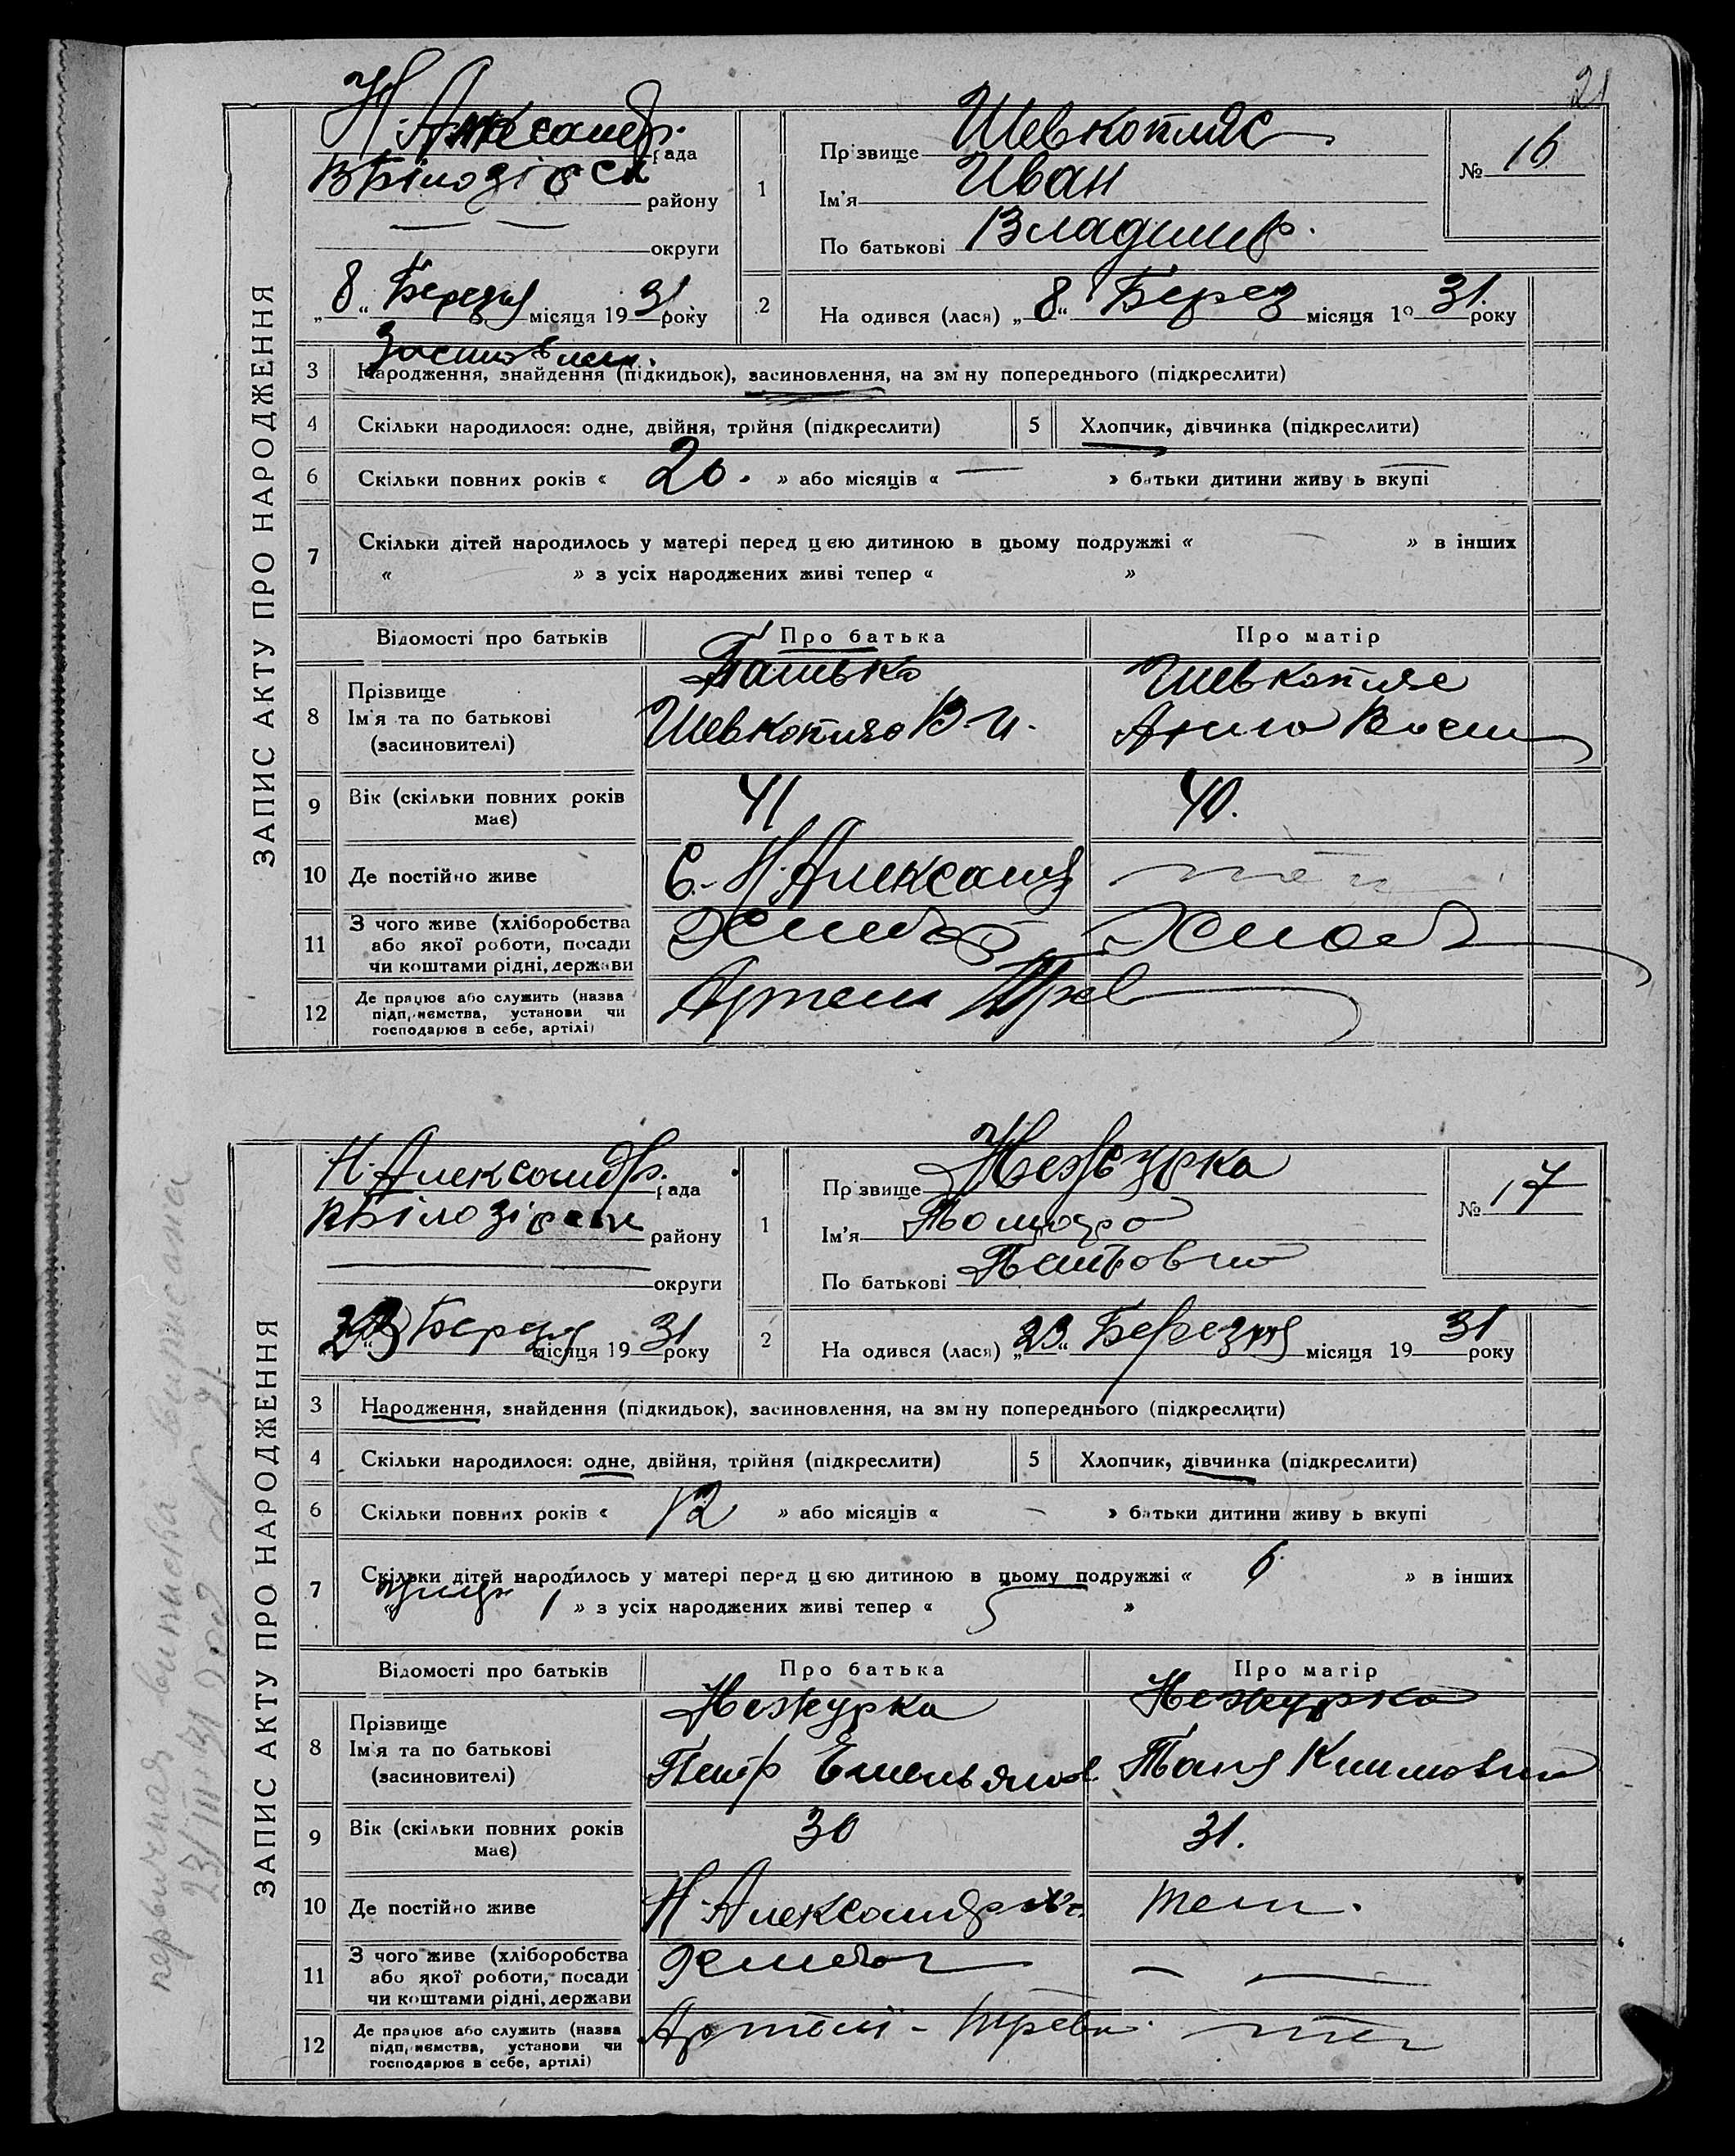 21
ЗАПИС АКТУ ПРО НАРОДЖЕННЯ
Н. Александр. рада
В Білозірск району
— — округи
„8“ Березня місяця 1931 року
1
Прізвище Шевкопляс
Ім'я Иван
По батькові Владимир.
№ 16
2
На одився (лася) „8“ Берез місяця 1931. року
Засиновлен.
3 Народження, знайдення (підкидьок), засиновлення, на зміну попереднього (підкреслити)
4 Скільки народилося: одне, двійня, трійня (підкреслити)
5 Хлопчик, дівчинка (підкреслити)
6 Скільки повних років « 20. » або місяців « — » батьки дитини живуть вкупі
7 Скільки дітей народилось у матері перед цею дитиною в цьому подружжі « » в інших
« » з усіх народжених живі тепер « »
Відомості про батьків Про батька Про матір
8 Прізвище
Ім'я та по батькові
(засиновителі)
Батько
Шевкопляс В. И.
Шевкопляс
9 Вік (скільки повних років
має)
41
40.
10 Де постійно живе
С. Н. Александ
там
11 З чого живе (хліборобства
або якої роботи, посади
чи коштами рідні, держави
Хлибоб
Хлиб
12 Де працює або служить (назва
підприємства, установи чи
господарює в себе, артілі)
Артели
ЗАПИС АКТУ ПРО НАРОДЖЕННЯ
Н. Александр. рада
Білозірськ району
— округи
„23“ Березня місяця 1931 року
1
Прізвище Нежурка
Ім'я
По батькові Петровна
№ 17
2
На одився (лася) „23“ Березня місяця 1931 року
3 Народження, знайдення (підкидьок), засиновлення, на зміну попереднього (підкреслити)
4 Скільки народилося: одне, двійня, трійня (підкреслити)
5 Хлопчик, дівчинка (підкреслити)
6 Скільки повних років « 12 » або місяців « - » батьки дитини живуть вкупі
7 Скільки дітей народилось у матері перед цею дитиною в цьому подружжі « 6 » в інших
« 1 » з усіх народжених живі тепер « 5 »
Відомості про батьків Про батька Про матір
8 Прізвище
Ім'я та по батькові
(засиновителі)
Нежурка
Петр Емельянов
Нежурка
Таня Климовна
9 Вік (скільки повних років
має)
30
31.
10 Де постійно живе
Н. Александровка
там.
11 З чого живе (хліборобства
або якої роботи, посади
чи коштами рідні, держави
Хлибоб
— —
12 Де працює або служить (назва
підприємства, установи чи
господарює в себе, артілі)
Артели -
первичная выписка выписана
23/III-31